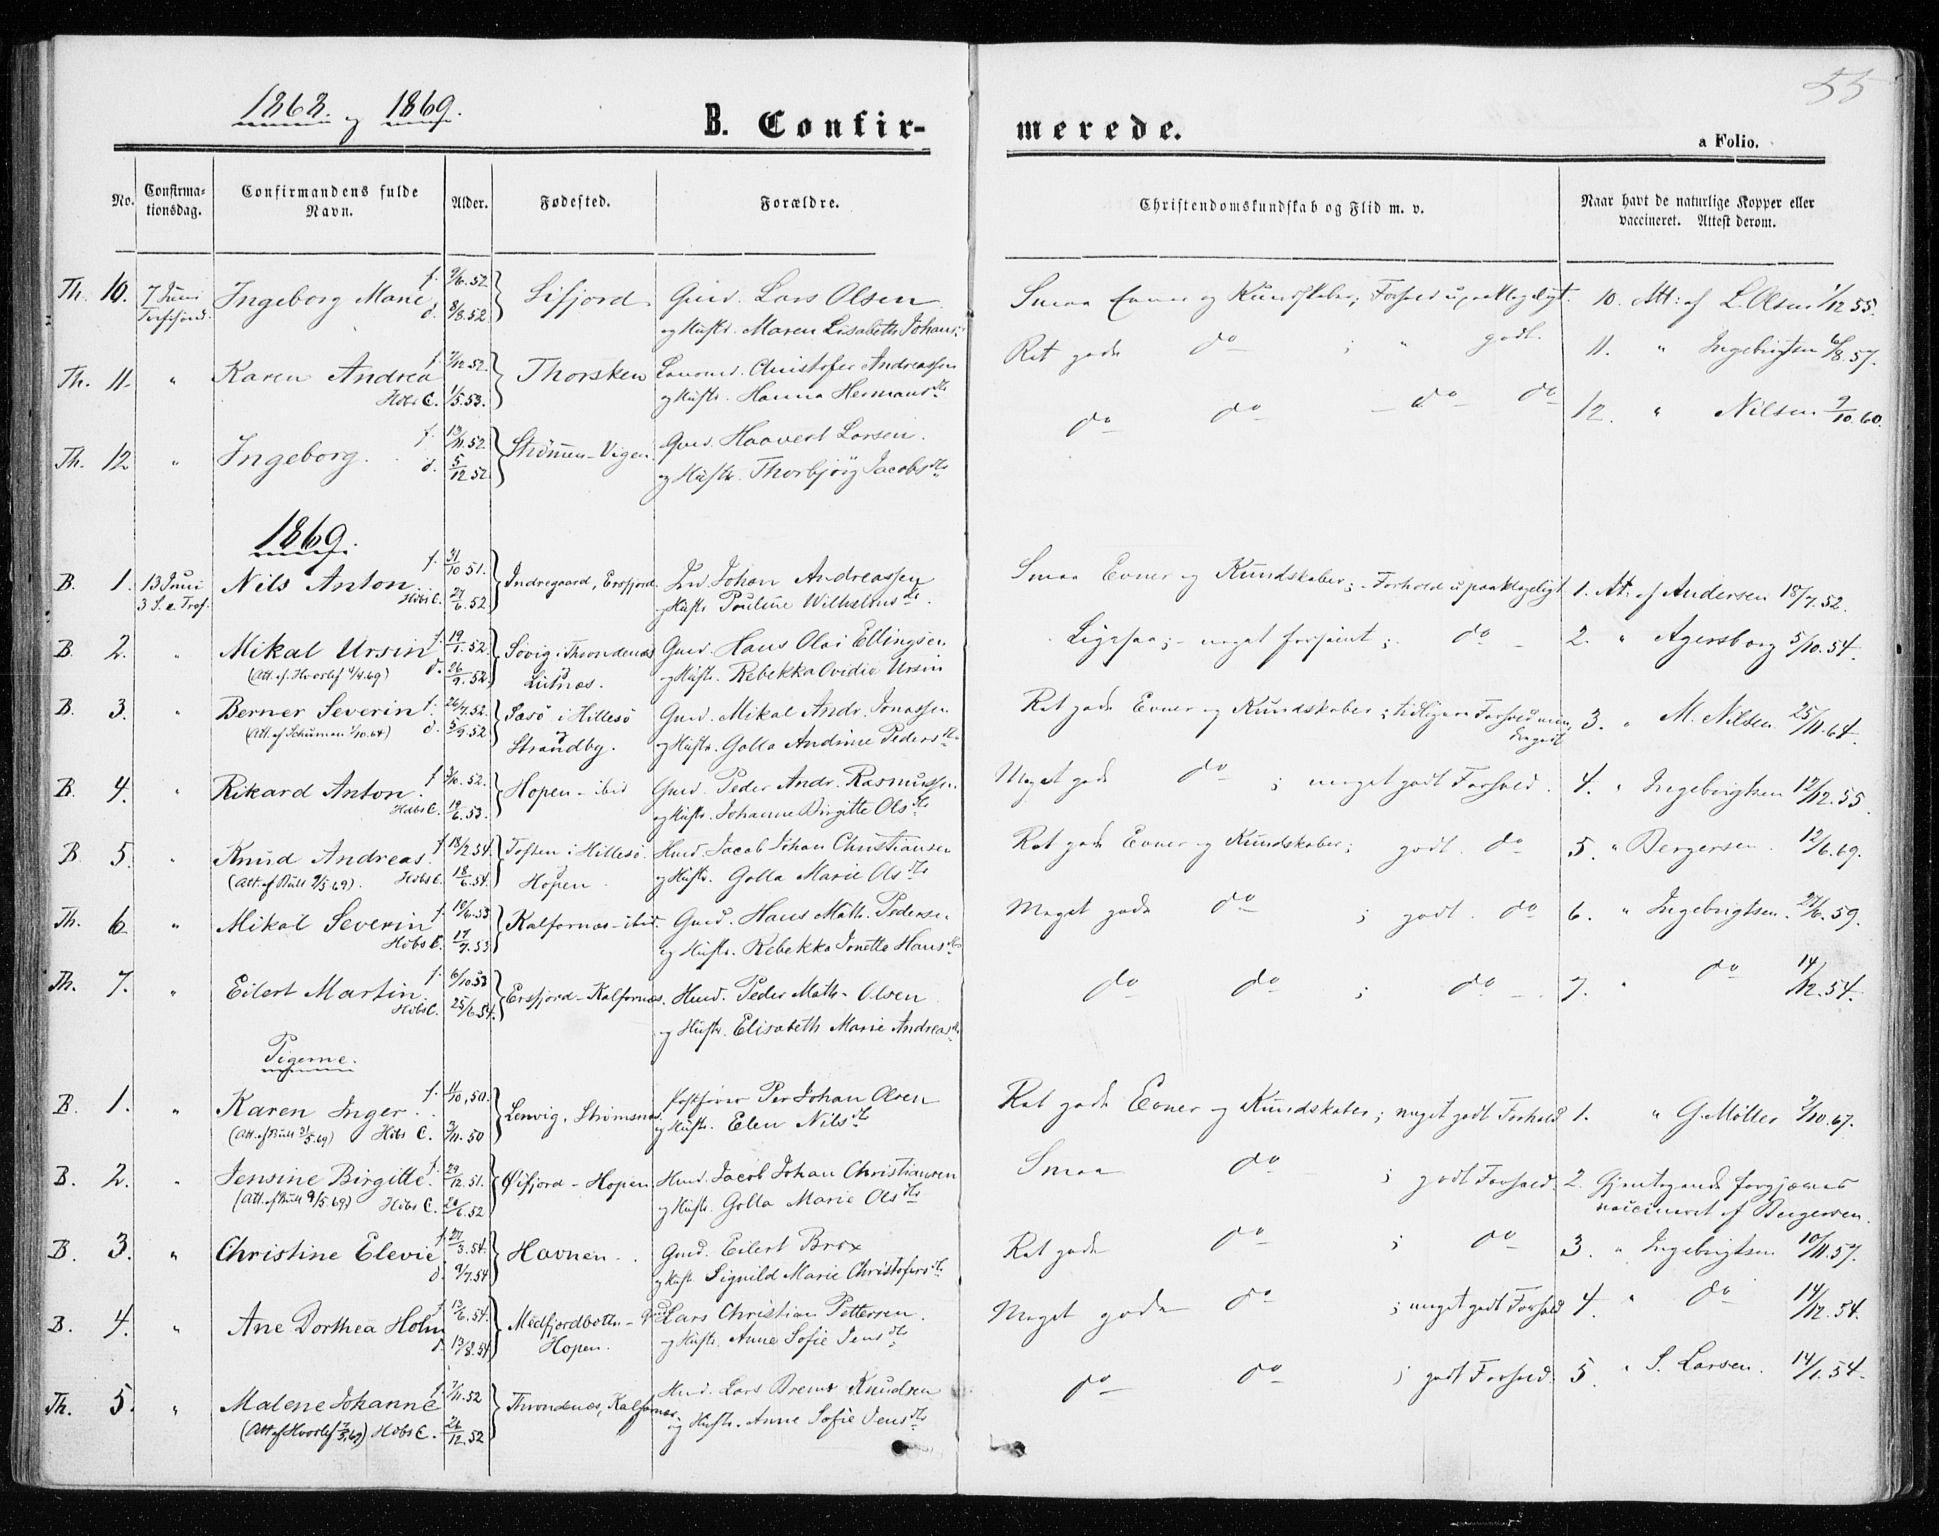 55
1868. og 1869.
B. Confir- merede.
a Folio.
No. Confirma-tionsdag. Confirmandens fulde Navn. Alder. Fødested. Forældre. Christendomskundskab og Flid m. v. Naar havt de naturlige Kopper eller vaccineret. Attest derom.
Th. 10. 7 Juni Ingeborg Marie f. 9/6.52 Sifjord. Gmd. Lars Olsen Smaa Evner og Kundskaber; Forhold upaaklageligt. 10. Att: af L. Olsen 1/12 55.
d. 8/8.52 og Hustr. Maren Lisabeth Johans
Th. 11. " Karen Andrea f. 52. Thorsken Christofer Andreassen Ret gode do ; " godt. 11. " Ingebrigtsen 6/8.57.
HdbsC. 1/5.53. og Hustr. Hanna Hermansdtr
Th. 12 " Ingeborg. f. 13/11.52 Strømmen-Vigen Gmd. Haavert Larsen. do do - do do 12. " Nilsen 9/10.60.
d. 5/12 52 og Hustr. Thorbjør Jacobsdtr
1869.
B. 1. 13 Juni Nils Anton f. 31/10 51. Indregaard, Ersfjord Ind. Johan Andreassen Smaa Evner og Kundskaber; - Forhold upaaklageligt 1. At: af Andersen 18/7.52.
3 S. e. Tref. HdbsC. 27/6.52 og Hustr. Pauline Wilhelmsdtr.
B. 2. " Mikal Ursin f. 19/1.52 Søvig i Throndenæs Gmd. Hans Olai Ellingsen Ligesaa; - meget forsømt; do - 2. " Agersborg 5/10.54.
(Att. af Hvoslef 4/4.69) d. 26/9.52. og Lutnæs. og Hustr. Rebekka Ovidia Ursin
B. 3. " Berner Severin f. 26/7.52. Sasø i Hillesø Gmd. Mikal Andr. Jonassen Ret gode Evner og Kundskaber; tidligere Forhold mindre godt 3. " M. Nilsen 25/11.64.
(Att. af Schuman 1/10.64) d. 5/9.52 og Strandby. og Hustr. Golla Andrine Pedersdtr
B. 4. " Rikard Anton. f. 3/10.52. Hopen - ibid Gmd. Peder Andr. Rasmussen Meget gode do ; meget godt Forhold. 4. " Ingebrigtsen 12/12.55
HdbsC. 19/6.53. og Hustr. Johanne Birgitte Olsdtr
B. 5. " Knud Andreas. f. 18/2.54. Toften i Hillesø. Hmd. Jacob Johan Christiansen Ret gode Evner og Kundskaber; godt. do 5. " Bergersen. 12/6.69.
(Att. af Bull 9/5.69). HdbsC. 18/6.54. og Hopen. og Hustr. Golla Marie Olsdtr
Th. 6. " Mikal Severin f. 10/6.53 Kalfarnes - ibid. Gmd. Hans Math. Pedersen Meget gode do ; godt. do 6. " Ingebrigtsen. 27/6.59.
HdbsC. 17/7.53 og Hustr. Rebekka Jonetta Hansdtr
Th. 7. " Eilert Martin f. 6/10 53 Ersfjord - Kalfarnes. Hmd. Peder Math. Olsen do do ; do - 7. " do 14/12.54.
HdbsC. 25/6.54. og Hustr. Elisabeth Marie Andreasdtr
Pigerne.
B. 1. " Karen Inger. f. 11/10, 50. Lenvig, Strømsnes. Per Johan Olsen Ret gode Evner og Kundskaber; meget godt Forhold 1. " G. Møller 9/10.67.
(Att. af Bull 31/5.69) Hdbs C. 3/11.50 og Hustr. Elen Nilsdtr
B. 2. " Jensine Birgitte. f. 29/12.51. Øifjord - Hopen Hmd. Jacob Johan Christiansen Smaa do ; godt Forhold. 2. Gjentagende forgjæves vaccineret af Bergersen.
(Att. af Bull 9/5.69) Hdbs C. 20/6.52 og Hustr. Golla Marie Olsdtr
B. 3. " Christine Elevie f. 27/3.54. Havnen. Gmd. Eilert Brox Ret gode do ; do 3. " Ingebrigtsen 10/11.57.
d. 9/7.54 og Hustr. Signild Marie Christofersdtr
B. 4. " Ane Dorthea Holm f. 13/6.54. Medfjordbotn - Hopen. Gmd. Lars Christian Pettersen. Meget gode do ; meget godt Forhold 4. " do 14/12.54.
d. 13/8.54 og Hustr. Anne Sofie Jensdtr
Th. 5. " Malene Johanne f. 7/11.52 Throndenæs, Kalfarnes. Hmd. Lars Brems Knudsen do do ; godt Forhold. 5. " S. Larsen. 14/1.54.
(Att af Hvoslef 7/3.69) Hdbs C. 26/12.52 og Hustr. Anne Sofie Jensdtr